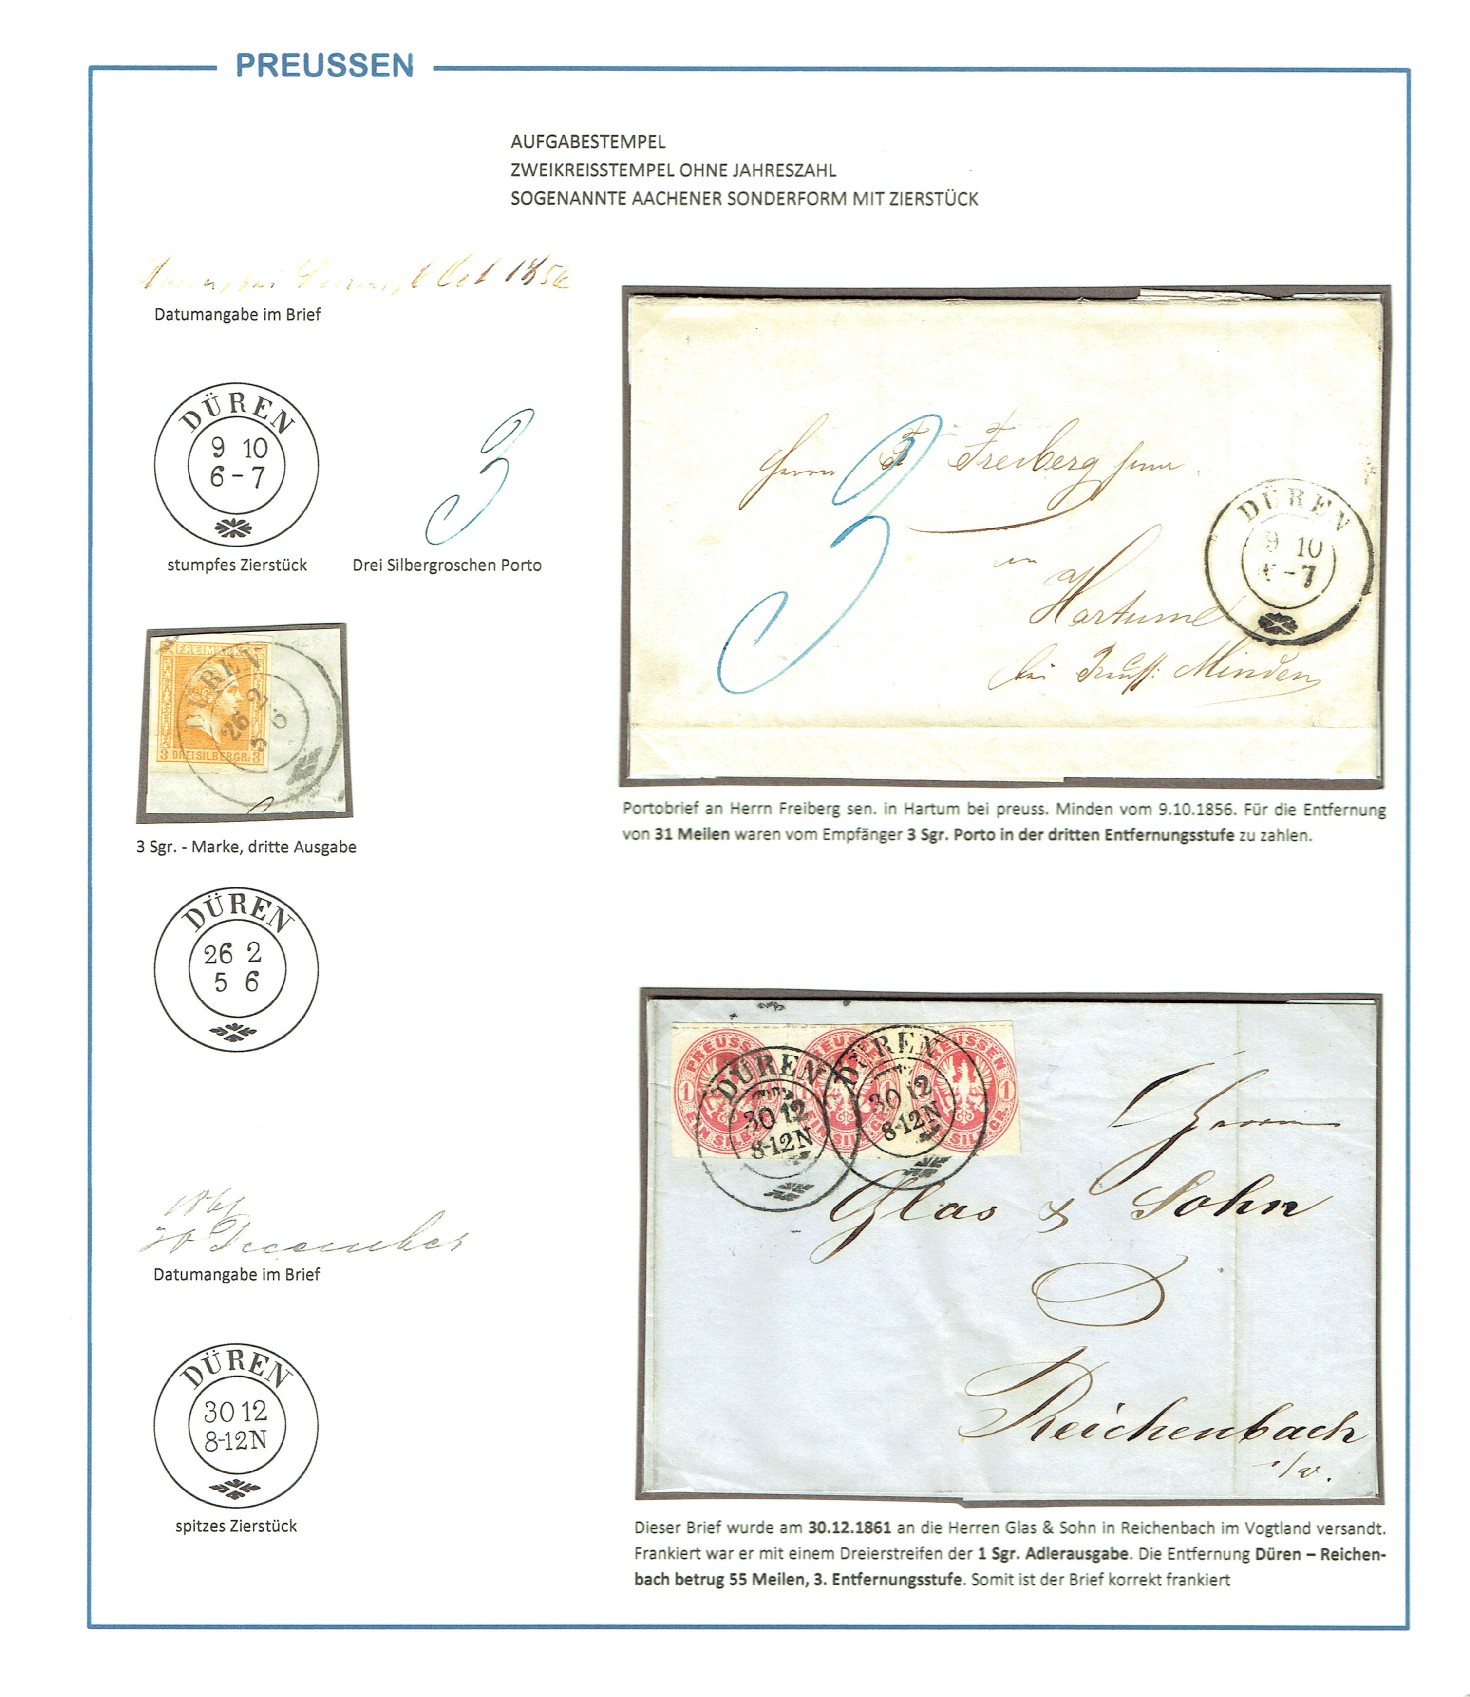 PREUSSEN
AUFGABESTEMPEL
ZWEIKREISSTEMPEL OHNE JAHRESZAHL
SOGENANNTE AACHENER SONDERFORM MIT ZIERSTÜCK
Oct 1856
Datumangabe im Brief
DÜREN
9 10
6 - 7
stumpfes Zierstück
3
Drei Silbergroschen Porto
Herrn F Freiberg senr
in
Hartum
bei Preuss: Minden
3
DÜREN
9 10
6 - 7
Portobrief an Herrn Freiberg sen. in Hartum bei preuss. Minden vom 9.10.1856. Für die Entfernung
von 31 Meilen waren vom Empfänger 3 Sgr. Porto in der dritten Entfernungsstufe zu zahlen.
FREIMARKE
3 DREI SILBERGR. 3
DÜREN
26 2
5 6
3 Sgr. - Marke, dritte Ausgabe
DÜREN
26 2
5 6
1861
30 December
Datumangabe im Brief
DÜREN
30 12
8-12N
spitzes Zierstück
PREUSSEN
1 EIN SILB
PREUSSEN
EIN SILB. GR. 1
PREUSSEN
SILB. GR. 1
DÜREN
30 12
8-12N
DÜREN
30 12
8-12N
Herren
Glas & Sohn
Reichenbach
i/v.
Dieser Brief wurde am 30.12.1861 an die Herren Glas & Sohn in Reichenbach im Vogtland versandt.
Frankiert war er mit einem Dreierstreifen der 1 Sgr. Adlerausgabe. Die Entfernung Düren – Reichen-
bach betrug 55 Meilen, 3. Entfernungsstufe. Somit ist der Brief korrekt frankiert